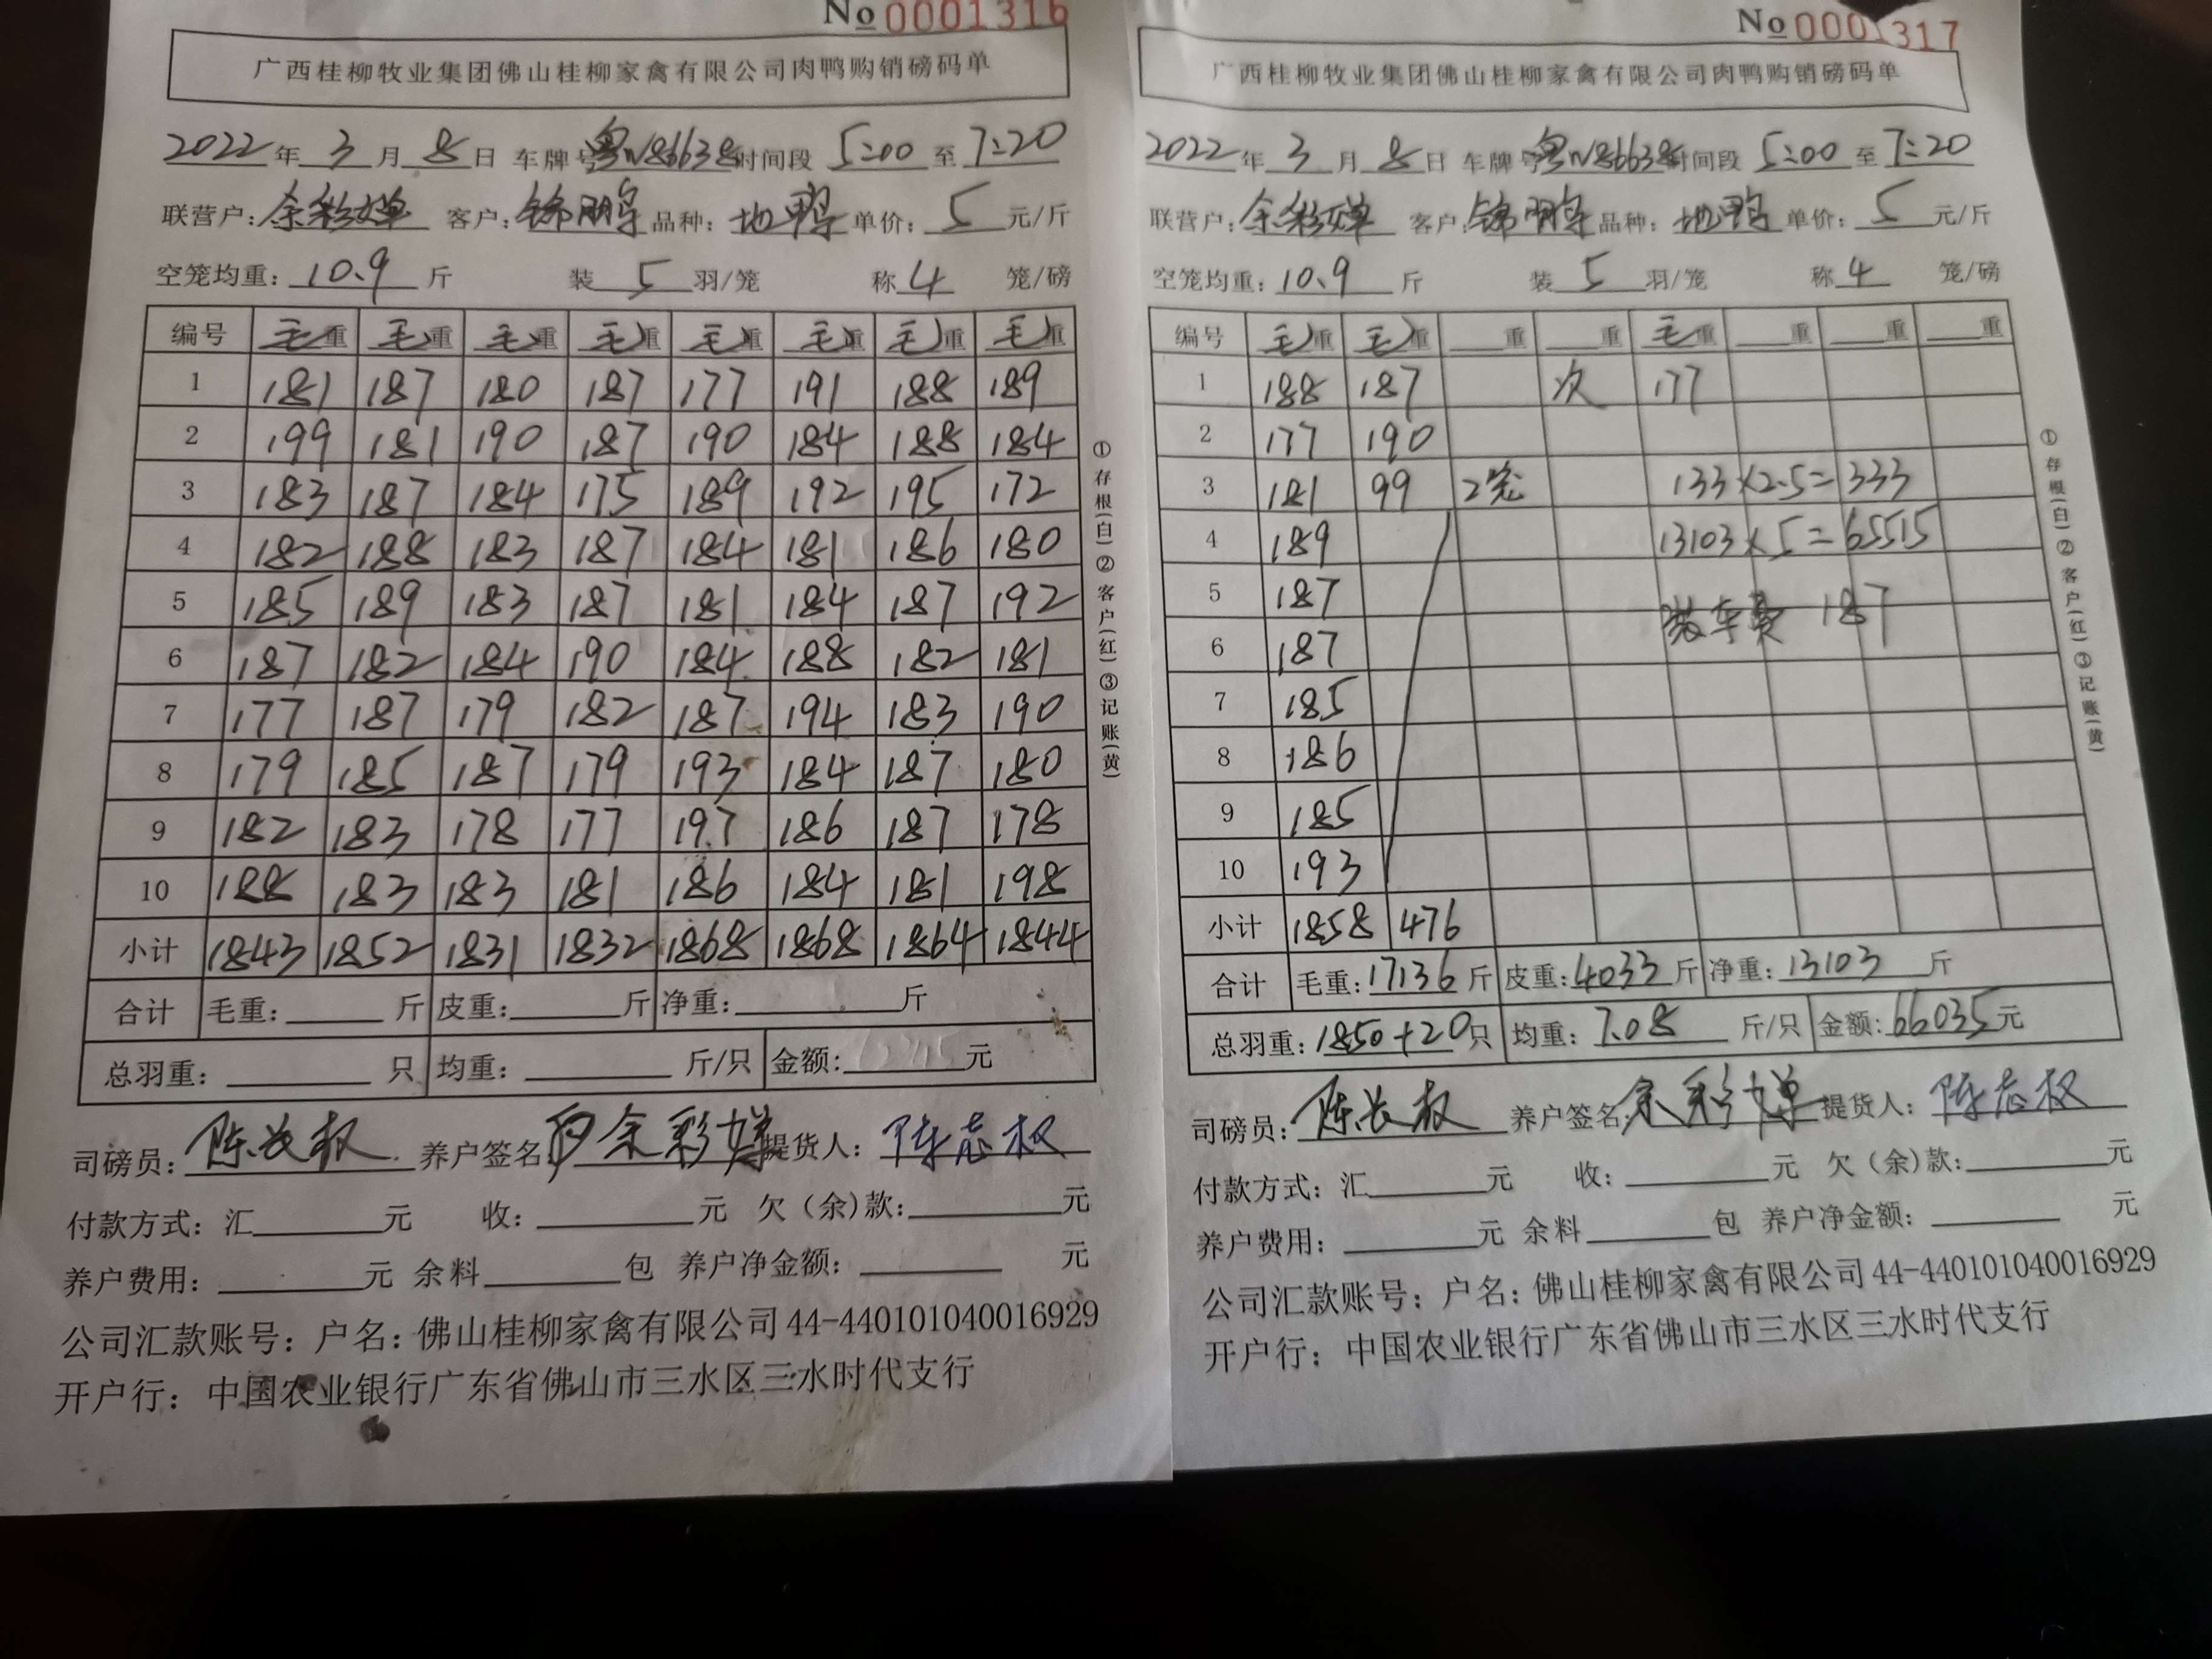 No 0001316
广西桂柳牧业集团佛山桂柳家禽有限公司肉鸭购销磅码单
2022年 3 月 8 日 车牌号粤W86638时间段 5:00 至 7:20
联营户:余彩婵 客户:锦鹏 品种:地鸭 单价: 5 元/斤
空笼均重: 10.9 斤 装 5 羽/笼 称 4 笼/磅
编号 毛重 毛重 毛重 毛重 毛重 毛重 毛重 毛重
1 181 187 180 187 177 191 188 189
2 199 181 190 187 190 184 188 184
3 183 187 184 175 189 192 195 172
4 182 188 183 187 184 181 186 180
5 185 189 183 187 181 184 187 192
6 187 182 184 190 184 188 182 181
7 177 187 179 182 187 194 183 190
8 179 185 187 179 193 184 187 180
9 182 183 178 177 197 186 187 178
10 188 183 183 181 186 184 181 198
小计 1843 1852 1831 1832 1868 1868 1864 1844
合计 毛重: 斤 皮重: 斤 净重: 斤
总羽重: 只 均重: 斤/只 金额: 元
司磅员: 陈长权 养户签名: 余彩婵 提货人: 陈志权
付款方式:汇 元 收: 元 欠(余)款: 元
养户费用: 元 余料 包 养户净金额: 元
公司汇款账号:户名:佛山桂柳家禽有限公司44-440101040016929
开户行:中国农业银行广东省佛山市三水区三水时代支行
①存根(白)②客户(红)③记账(黄)
No 0001317
广西桂柳牧业集团佛山桂柳家禽有限公司肉鸭购销磅码单
2022年 3 月 8 日 车牌号粤W86638时间段 5:00 至 7:20
联营户:余彩婵 客户:锦鹏 品种:地鸭 单价: 5 元/斤
空笼均重: 10.9 斤 装 5 羽/笼 称 4 笼/磅
编号 毛重 毛重 重 重 毛重 重 重 重
1 188 187 次 177
2 177 190
3 181 99 2笼 133×2.5=333
4 189 13103×5=65515
5 187 装车费 187
6 187
7 185
8 186
9 185
10 193
小计 1858 476
合计 毛重:17136 斤 皮重:4033 斤 净重:13103 斤
总羽重:1850+20只 均重: 7.08 斤/只 金额:66035元
司磅员: 陈长权 养户签名:余彩婵 提货人: 陈志权
付款方式:汇 元 收: 元 欠(余)款: 元
养户费用: 元 余料 包 养户净金额: 元
公司汇款账号:户名:佛山桂柳家禽有限公司44-440101040016929
开户行:中国农业银行广东省佛山市三水区三水时代支行
①存根(白)②客户(红)③记账(黄)